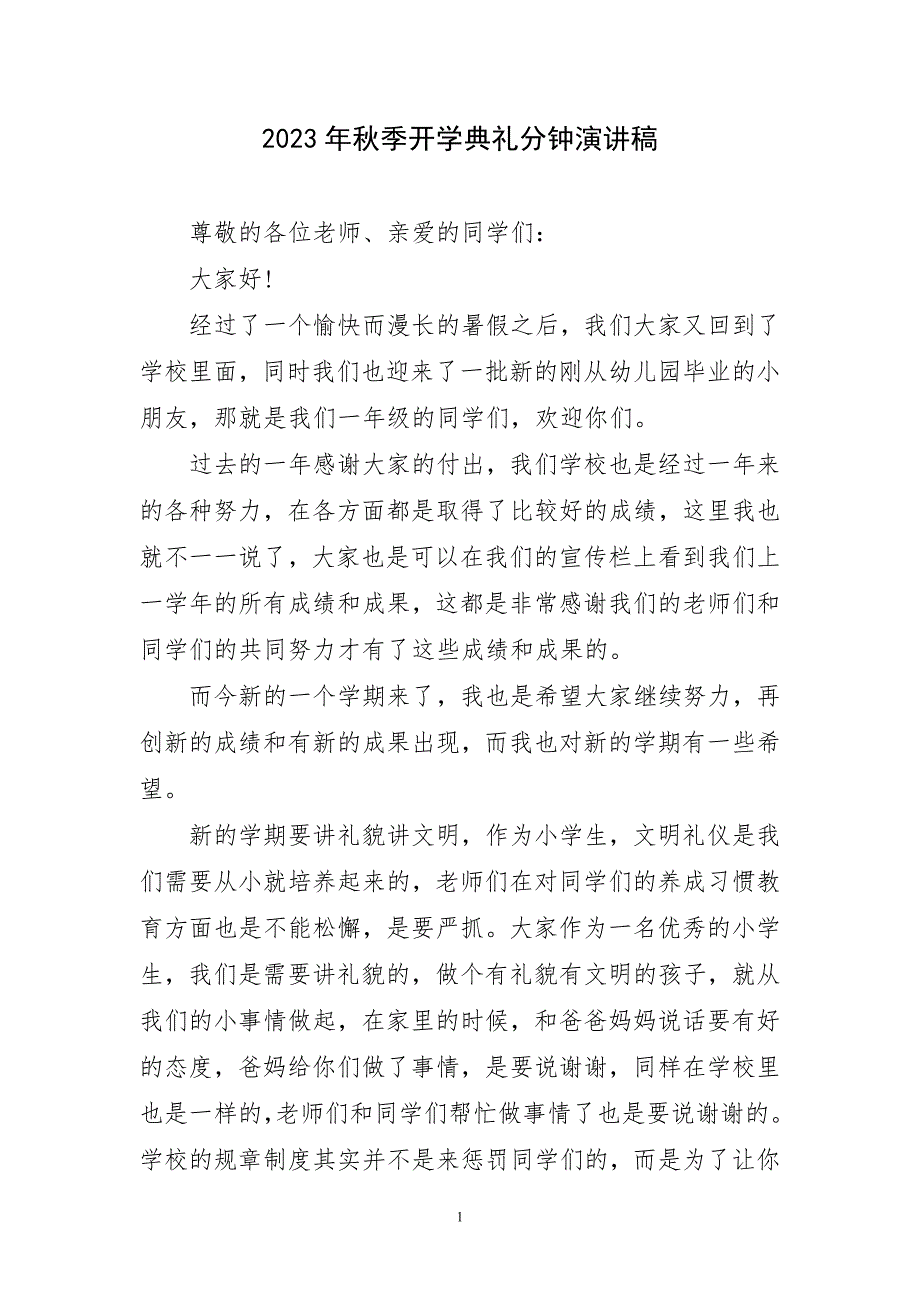 2023年秋季开学典礼分钟演讲稿
尊敬的各位老师、亲爱的同学们：
大家好!
经过了一个愉快而漫长的暑假之后，我们大家又回到了
学校里面，同时我们也迎来了一批新的刚从幼儿园毕业的小
朋友，那就是我们一年级的同学们，欢迎你们。
过去的一年感谢大家的付出，我们学校也是经过一年来
的各种努力，在各方面都是取得了比较好的成绩，这里我也
就不一一说了，大家也是可以在我们的宣传栏上看到我们上
一学年的所有成绩和成果，这都是非常感谢我们的老师们和
同学们的共同努力才有了这些成绩和成果的。
而今新的一个学期来了，我也是希望大家继续努力，再
创新的成绩和有新的成果出现，而我也对新的学期有一些希
望。
新的学期要讲礼貌讲文明，作为小学生，文明礼仪是我
们需要从小就培养起来的，老师们在对同学们的养成习惯教
育方面也是不能松懈，是要严抓。大家作为一名优秀的小学
生，我们是需要讲礼貌的，做个有礼貌有文明的孩子，就从
我们的小事情做起，在家里的时候，和爸爸妈妈说话要有好
的态度，爸妈给你们做了事情，是要说谢谢，同样在学校里
也是一样的，老师们和同学们帮忙做事情了也是要说谢谢的。
学校的规章制度其实并不是来惩罚同学们的，而是为了让你
1